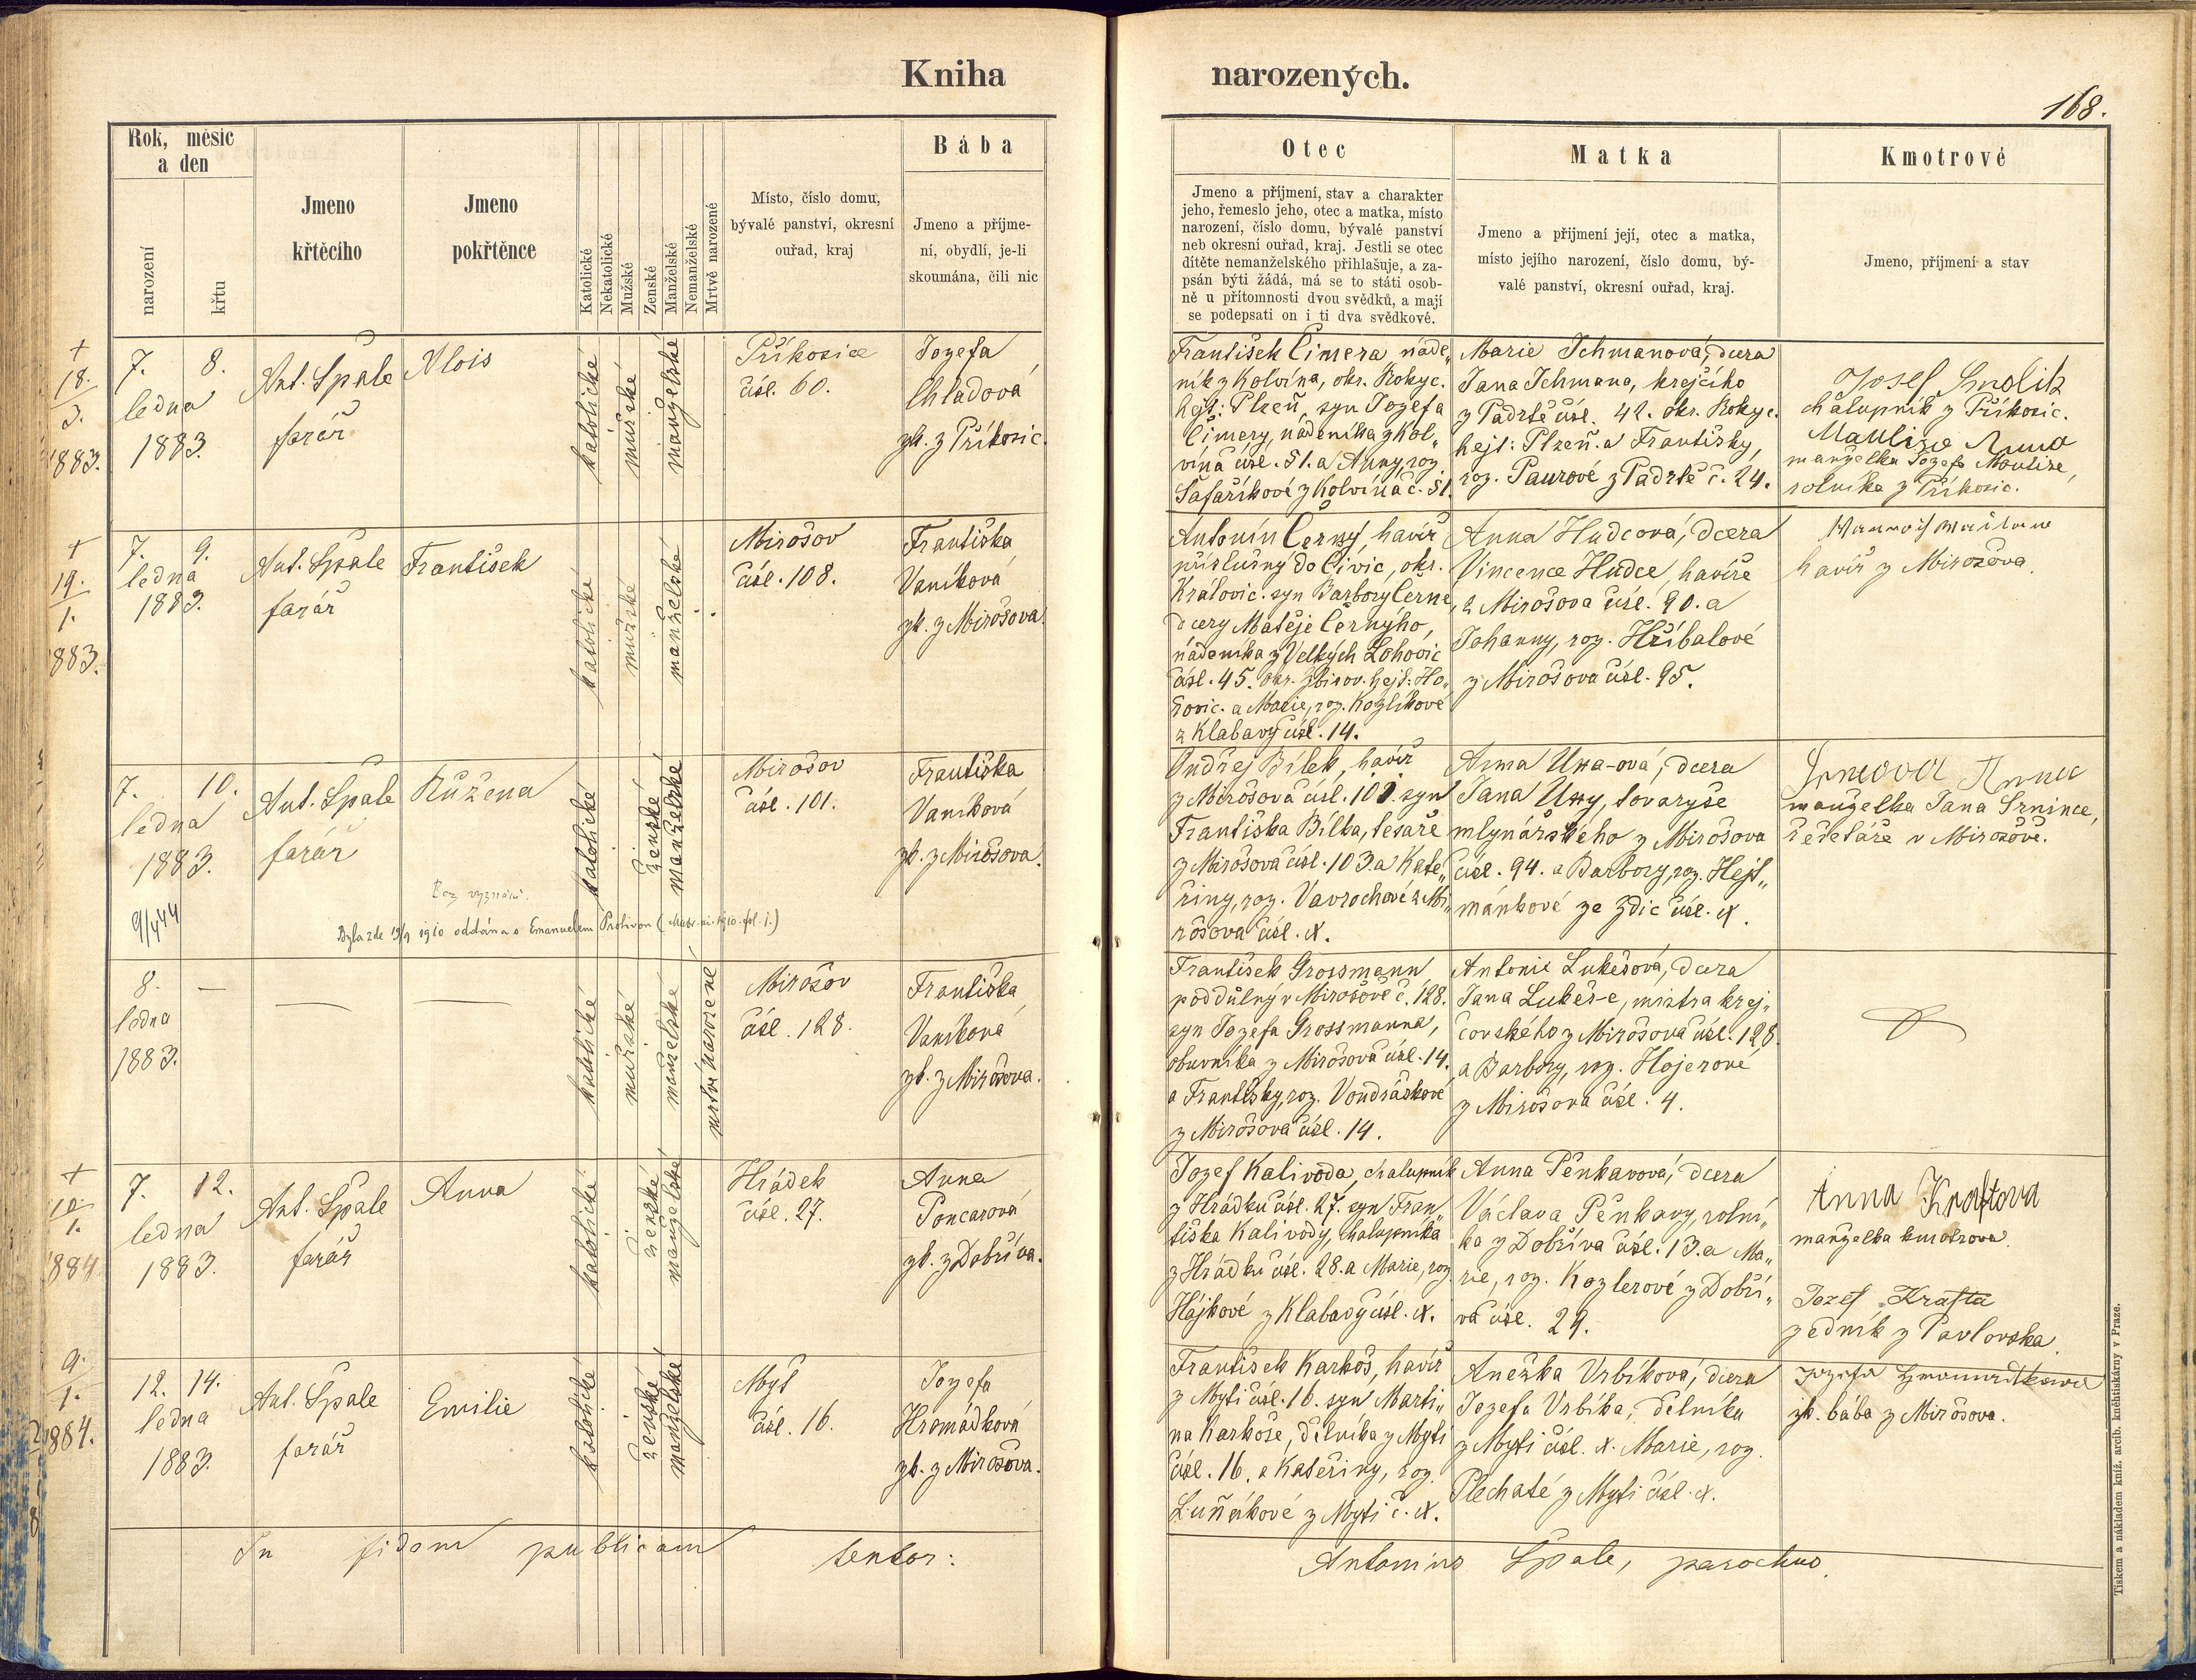 Kniha
narozených.
168.
Rok, měsíc
a den
narození
křtu
Jmeno
křtěcího
Jmeno
pokřtěnce
Katolické
Nekatolické
Mužské
Ženské
Manželské
Nemanželské
Mrtvě narozené
Místo, číslo domu,
bývalé panství, okresní
ouřad, kraj
Bába
Jmeno a příjme-
ní, obydlí, je-li
skoumána, čili nic
Otec
Jmeno a příjmení, stav a charakter
jeho, řemeslo jeho, otec a matka, místo
narození, číslo domu, bývalé panství
neb okresní ouřad, kraj. Jestli se otec
dítěte nemanželského přihlašuje, a za-
psán býti žádá, má se to státi osob-
ně u přítomnosti dvou svědků, a mají
se podepsati on i ti dva svědkové.
Matka
Jmeno a přijmení její, otec a matka,
místo jejího narození, číslo domu, bý-
valé panství, okresní ouřad, kraj.
Kmotrové
Jmeno, příjmení a stav
†
18.
3.
883.
7. 8.
ledna
1883.
Ant. Špale
farář
Alois
katolické
mužské
manželské
Příkosice
čísl. 60.
Jozefa
Chladová
zk. z Příkosic.
František Cimera náde„
ník z Kolvína, okr. Rokyc.
hejt: Plzeň, syn Jozefa
Cimery, nádeníka z Kol„
vína čísl. 51. a Anny, roz.
Šafaříkové z Kolvína č. 51.
Marie Tchmanová, dcera
Jana Tchmana, krejčího
z Padrtě čísl. 42. okr. Rokyc.
hejt: Plzeň. a Františky,
roz. Paurové z Padrtě č. 24.
Josef Smolik
chalupník z Příkosic.
Maulise Anna
manželka Jozefa Maulise,
rolníka z Příkosic.
†
19.
1.
883.
7. 9.
ledna
1883.
Ant. Špale
farář
František
katolické
mužské
manželské
Mirošov
čísl. 108.
Františka
Vaníková
zk. z Mirošova.
Antonín Černý, havíř
příslušný do Čivic, okr.
Královic. syn Barbory Černé,
dcery Matěje Černýho,
nádeníka z Velkých Lohovic
čísl. 45. okr. Zbirov. hejt: Ho„
řovic. a Marie, roz. Kozlíkové
z Klabavy čísl. 14.
Anna Hudcová, dcera
Vincence Hudce, havíře
z Mirošova čísl. 90. a
Johanny, roz. Hříbalové
z Mirošova čísl. 95.
havíř z Mirošova.
7. 10.
ledna
1883.
9/444
Ant. Špale
farář
Růžena
Bez vyznání.
Byla zde 19/9 1910 oddána s Emanuelem Protivou
katolické
ženské
manželské
Mirošov
čísl. 101.
Františka
Vaníková
zk. z Mirošova.
Ondřej Bílek, havíř
z Mirošova čísl. 101. syn
Františka Bílka, tesaře
z Mirošova čísl. 103. a Kate„
řiny, roz. Vavrochové z Mi„
rošova čísl. x.
Anna Uxa-ová, dcera
Jana Uxy, tovaryše
mlynářského z Mirošova
čísl. 94. a Barbory, roz. Hejt„
mánkové ze Zdic čísl. x.
Anna
manželka Jana Srnince,
řešetáře v Mirošově.
8. —
ledna
1883.
katolické
mužské
manželské
mrtvě narozené
Mirošov
čísl. 128.
Františka
Vaníková
zk. z Mirošova.
František Grossmann
poddůlný v Mirošově č. 128.
syn Jozefa Grossmanna,
obuvníka z Mirošova čísl. 14.
a Františky, roz. Vondráskové
z Mirošova čísl. 14.
Antonie Lukešová, dcera
Jana Lukeš-e, mistra krej„
čovského z Mirošova čísl. 128.
a Barbory, roz. Hojerové
z Mirošova čísl. 4.
†
10.
1.
884
7. 12.
ledna
1883.
Ant. Špale
farář
Anna
katolické
ženské
manželské
Hrádek
čísl. 27.
Anna
Poncarová
zk. z Dobříva.
Jozef Kalivoda, chalupník
z Hrádku čísl. 27. syn Fran„
tiška Kalivody, chalupníka
z Hrádku čísl. 28. a Marie, roz.
Hájkové z Klabavy čísl. x.
Anna Pěnkavová, dcera
Václava Pěnkavy, rolní„
ka z Dobříva čísl. 13. a Ma„
rie, roz. Kozlerové z Dobří„
va čísl. 29.
Anna Kraftova
manželka kmotrova.
Jozef Krafta
zedník z Pavlovska.
9.
1.
884.
12. 14.
ledna
1883.
Ant. Špale
farář
Emilie
katolické
ženské
manželské
Mýt
čísl. 16.
Jozefa
Hromádková
zk. z Mirošova.
František Karkoš, havíř
z Mýti čísl. 16. syn Marti„
na Karkoše, dělníka z Mýti
čísl. 16. a Kateřiny, roz.
Luňákové z Mýti č. x.
Anežka Vrbíková, dcera
Jozefa Vrbíka, dělníka
z Mýti čísl. x. Marie, roz.
Plechaté z Mýti čísl. x.
Jozefa Hromádková
zk. bába z Mirošova.
In fidem publicam testor:
Antonius Špale, parochus.
Tiskem a nákladem kníž. arcib. knihtiskárny v Praze.